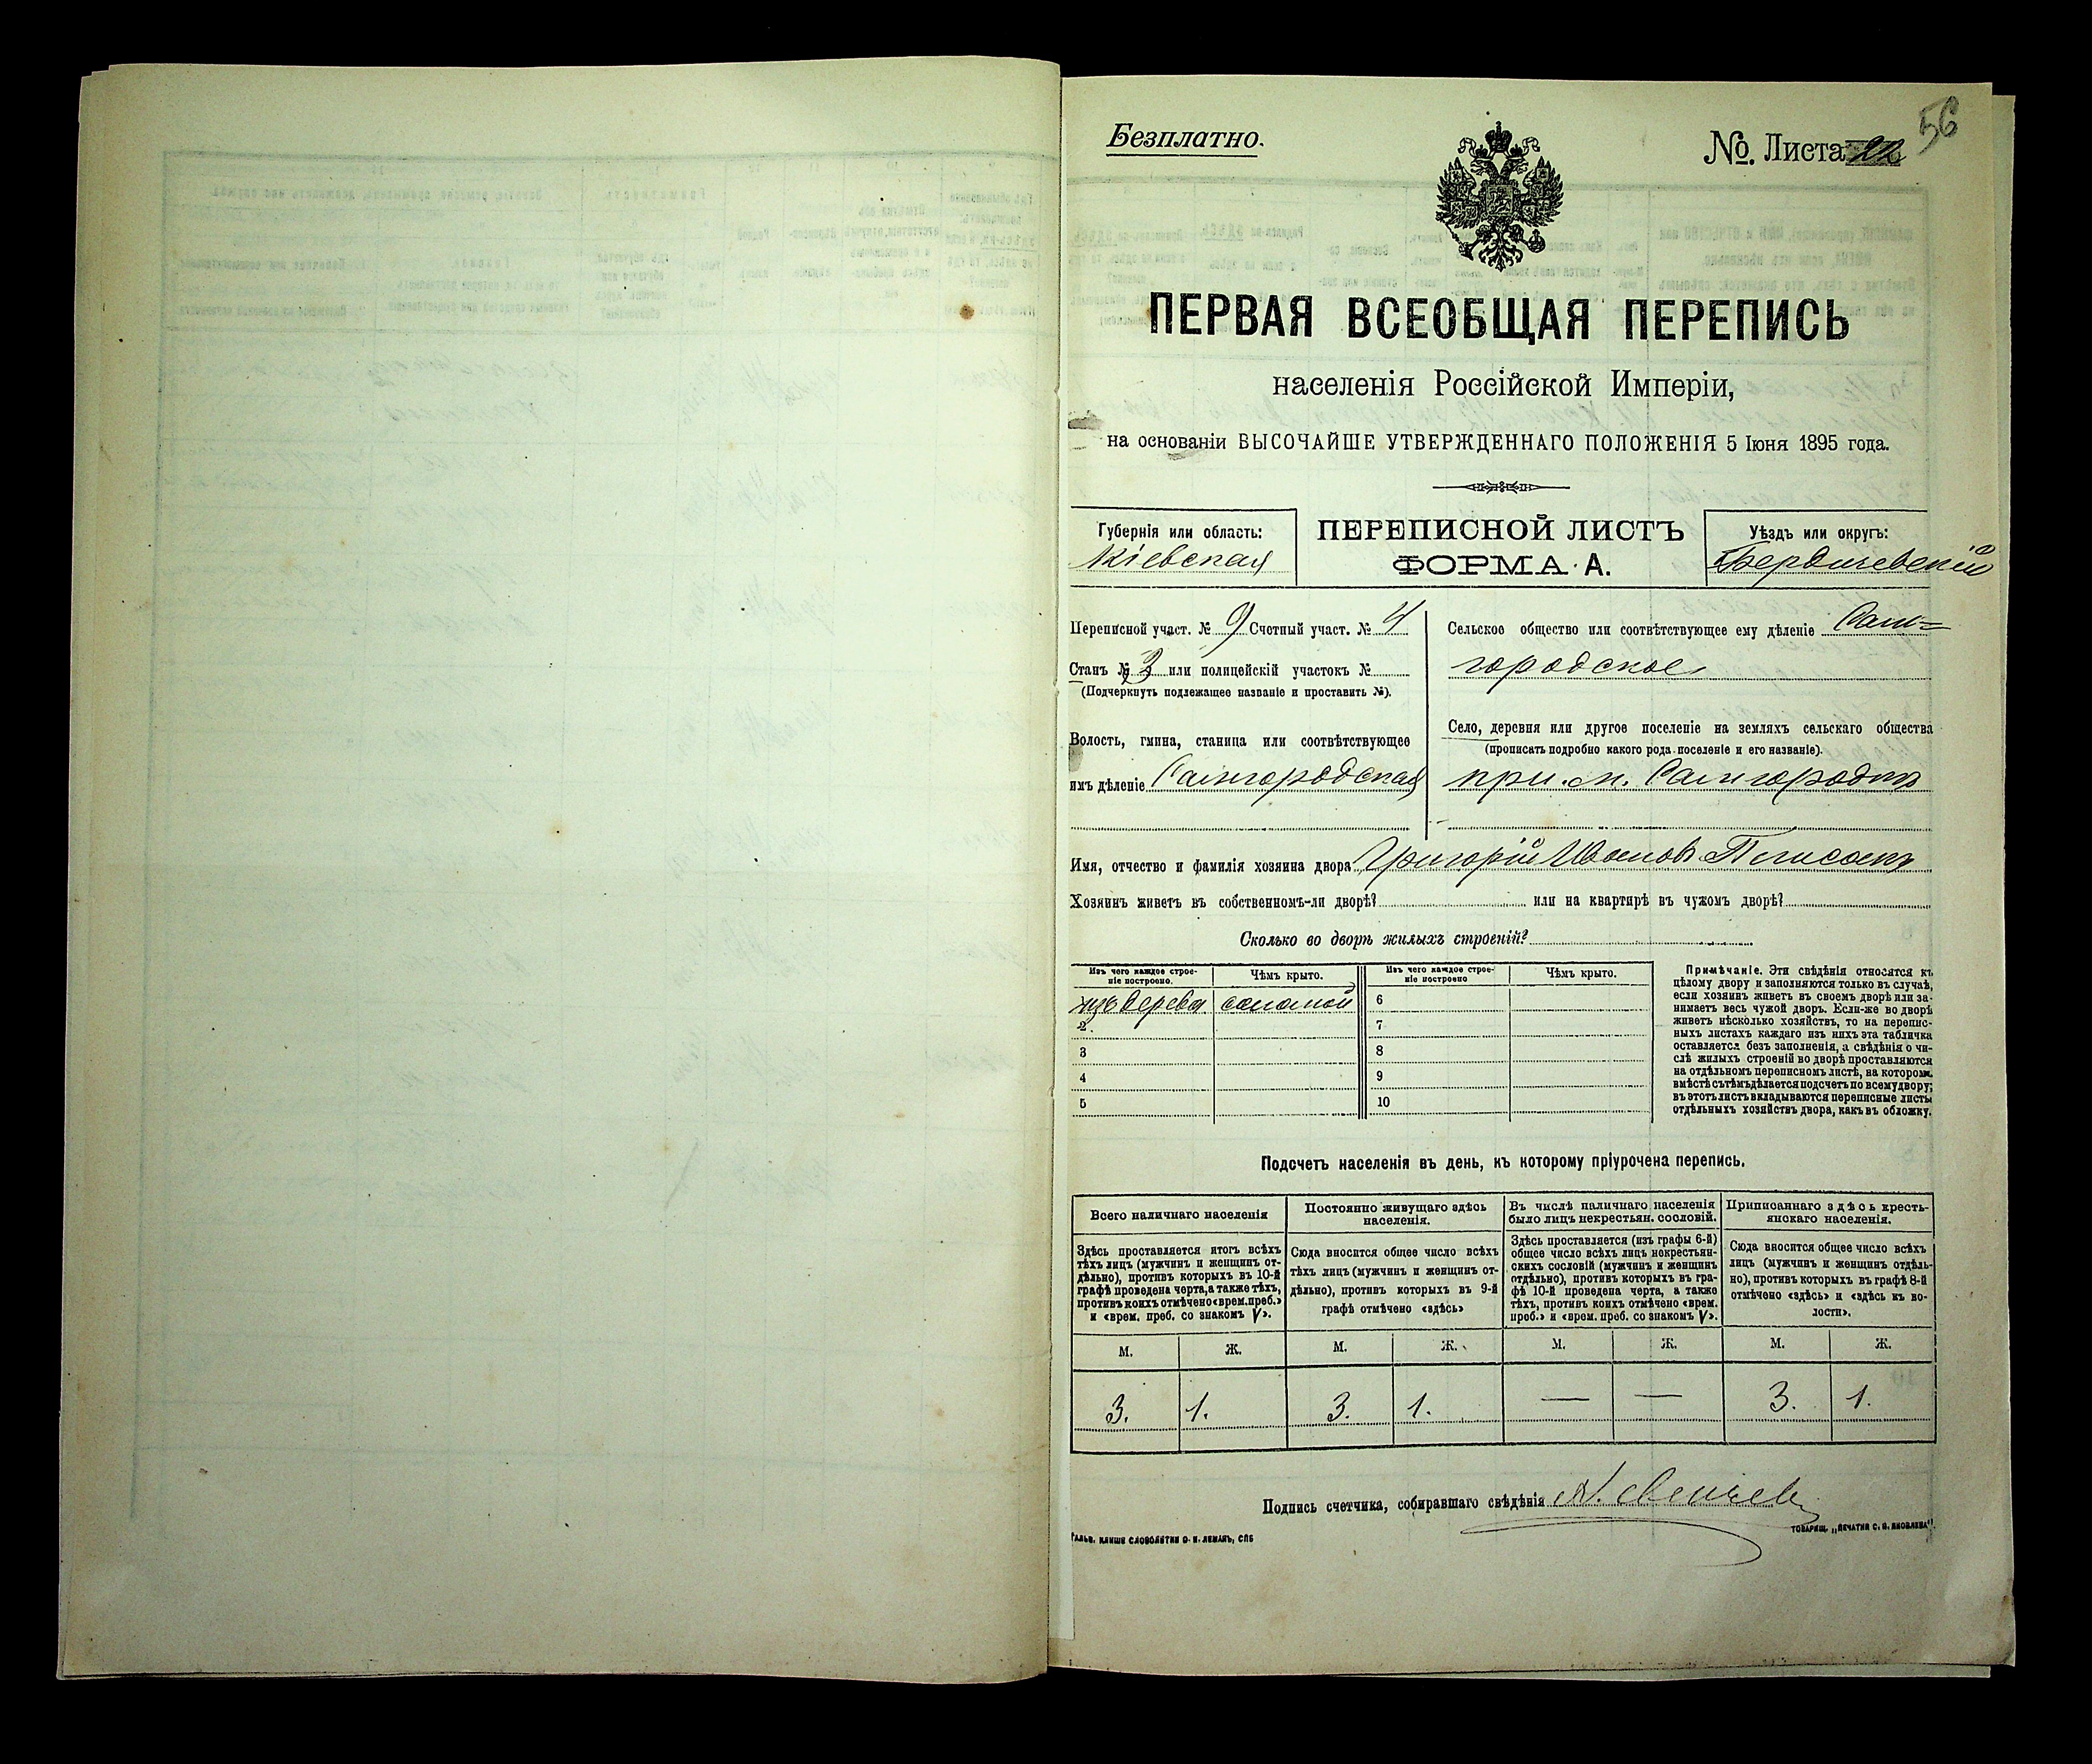 56
Безплатно.
№. Листа 22
ПЕРВАЯ ВСЕОБЩАЯ ПЕРЕПИСЬ
населенія Россійской Имперіи,
на основаніи ВЫСОЧАЙШЕ УТВЕРЖДЕННАГО ПОЛОЖЕНІЯ 5 Іюня 1895 года.
Губернія или область:
Кіевская
ПЕРЕПИСНОЙ ЛИСТЪ
ФОРМА А.
Уѣздъ или округъ:
Бердичевскій
Переписной участ. № 9 Счетный участ. № 4
Станъ № 3 или полицейскій участокъ №
(Подчеркнуть подлежащее названіе и проставить №).
Волость, гмина, станица или соотвѣтствующее
имъ дѣленіе Самгородская
Сельское общество или соотвѣтствующее ему дѣленіе Сам=
городское
Село, деревня или другое поселеніе на земляхъ сельскаго общества
(прописать подробно какого рода поселеніе и его названіе).
при м. Самгородкѣ
Имя, отчество и фамилія хозяина двора Григорій Ивановъ
Хозяинъ живетъ въ собственномъ-ли дворѣ? или на квартирѣ въ чужомъ дворѣ?
Сколько во дворѣ жилыхъ строеній?
Изъ чего каждое строе-
ніе построено.
Чѣмъ крыто.
Изъ чего каждое строе-
ніе построено
Чѣмъ крыто.
изъ дерева соломой 6
2. 7
3 8
4 9
5 10
Примѣчаніе. Эти свѣдѣнія относятся къ
цѣлому двору и заполняются только въ случаѣ,
если хозяинъ живетъ въ своемъ дворѣ или за-
нимаетъ весь чужой дворъ. Если-же во дворѣ
живетъ нѣсколько хозяйствъ, то на перепис-
ныхъ листахъ каждаго изъ нихъ эта табличка
оставляется безъ заполненія, а свѣдѣнія о чи-
слѣ жилыхъ строеній во дворѣ проставляются
на отдѣльномъ переписномъ листѣ, на которомъ
вмѣстѣ съ тѣмъ дѣлается подсчетъ по всему двору;
въ этотъ листъ вкладываются переписные листы
отдѣльныхъ хозяйствъ двора, какъ въ обложку.
Подсчетъ населенія въ день, къ которому пріурочена перепись.
Всего наличнаго населенія
Постоянно живущаго здѣсь
населенія.
Въ числѣ наличнаго населенія
было лицъ некрестьян. сословій.
Приписаннаго здѣсь кресть-
янскаго населенія.
Здѣсь проставляется итогъ всѣхъ
тѣхъ лицъ (мужчинъ и женщинъ от-
дѣльно), противъ которыхъ въ 10-й
графѣ проведена черта, а также тѣхъ,
противъ коихъ отмѣчено «врем. преб.»
и «врем. преб. со знакомъ V».
Сюда вносится общее число всѣхъ
тѣхъ лицъ (мужчинъ и женщинъ от-
дѣльно), противъ которыхъ въ 9-й
графѣ отмѣчено «здѣсь»
Здѣсь проставляется (изъ графы 6-й)
общее число всѣхъ лицъ некрестьян-
скихъ сословій (мужчинъ и женщинъ
отдѣльно), противъ которыхъ въ гра-
фѣ 10-й проведена черта, а также
тѣхъ, противъ коихъ отмѣчено «врем.
преб.» и «врем. преб. со знакомъ V».
Сюда вносится общее число всѣхъ
лицъ (мужчинъ и женщинъ отдѣль-
но), противъ которыхъ въ графѣ 8-й
отмѣчено «здѣсь» и «здѣсь къ во-
лости».
М. Ж. М. Ж. М. Ж. М. Ж.
3. 1. 3. 1. — — 3. 1.
Подпись счетчика, собиравшаго свѣдѣнія
ГАЛЬВ. КЛИШЕ СЛОВОЛИТНИ О. И. ЛЕМАНЪ, СПБ
ТОВАРИЩ. „ПЕЧАТНЯ С. П. ЯКОВЛЕВА“.